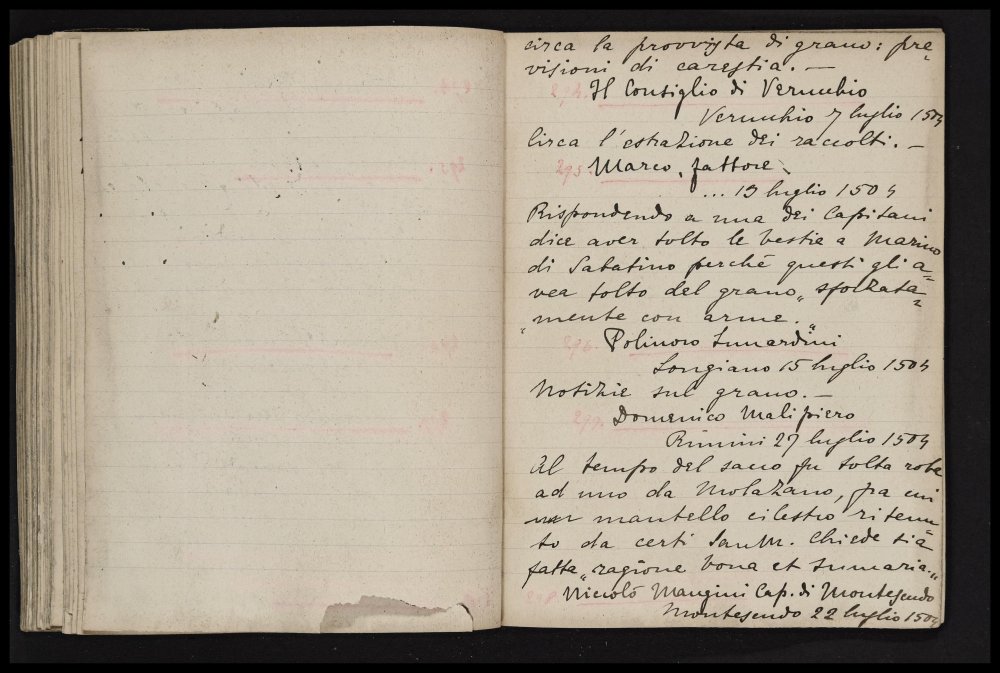 circa la provvista di grano: pre=
visioni di carestia. —
294. Il Consiglio di Verucchio
Verucchio 7 luglio 1504
Circa l'estrazione dei raccolti. —
295. Marco, fattore
... 13 luglio 1504
Rispondendo a una dei Capitani
dice aver tolto le bestie a Marino
di Sabatino perché questi gli a=
vea tolto del grano „sforzata=
„mente con arme."
296. Polinoro Lunardini
Longiano 15 luglio 1504
Notizie sul grano. —
297. Domenico Malipiero
Rimini 27 luglio 1504
Al tempo del sacco fu tolta robe
ad uno da Molazano, fra cui
mantello cilestro ritenu=
to da certi SanM. Chiede sia
fatta „ragione bona et sumaria."
Nicolò Mangini Cap. di Montescudo
Montescudo 22 luglio 1504